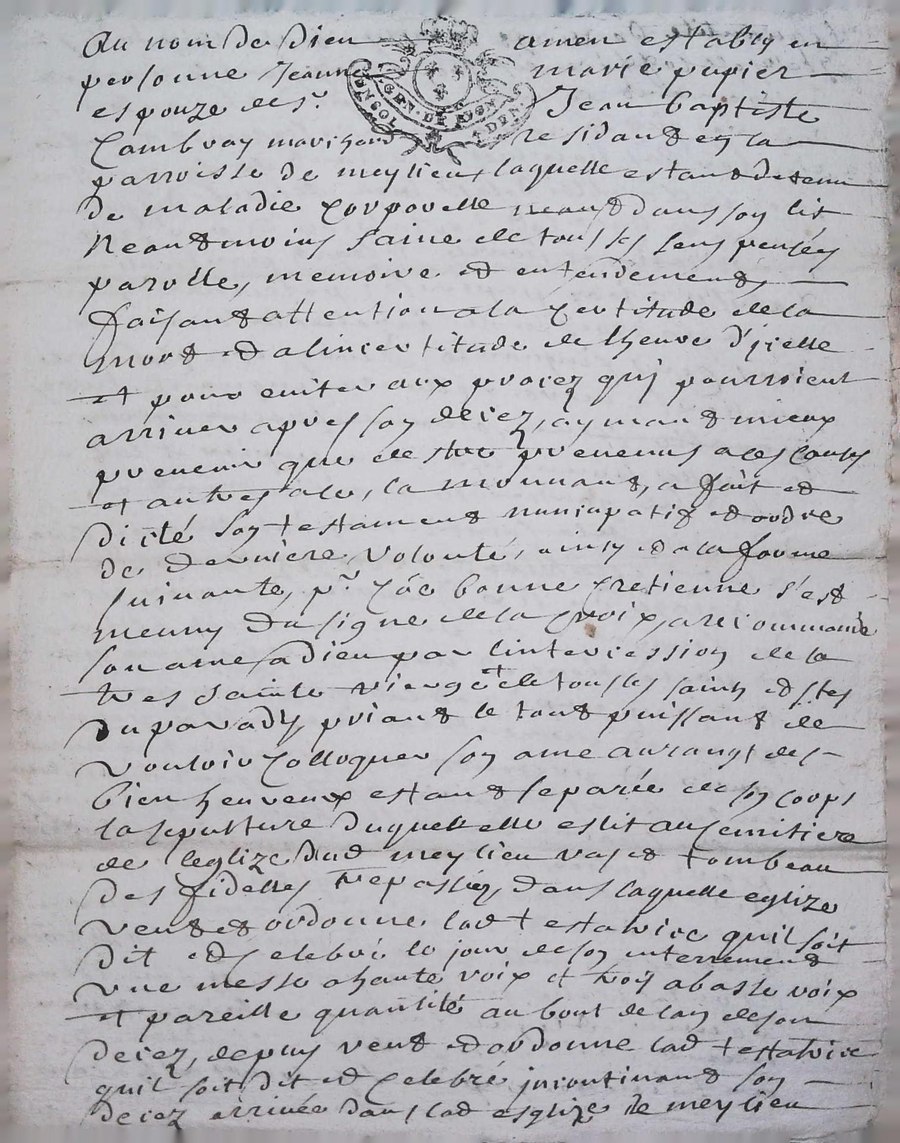 Au nom de Dieu amen establiy en
personne Jeanne marie papier
espouze de sr. Jean baptiste
Cambray marchand residant en la
parroisse de meylieu, laquelle estant detenu
de maladie corporelle neant dans son lit
Neantmoins saine de tous ses sens pensées
parolle, memoire et entendement,
faisant attention a la certitude de la
mort et a lincertitude de lheure d'icelle
et pour eviter aux procez qui pourroient
arriver apres son decez, aymant mieux
prevenir que destre prevenus a ces causes
et autres a la mouvant, a fait et
dicté son testament nuncupatif et ordre
de derniere volonté, ainsy et a la forme
suivante, pr. cõe bonne cretienne s'est
meuny du signe de la croix, a recommandé
son ame a dieu par lintercession de la
tres sainte vierge et de tous les saints et stes
du paradis, priant le tout puissant de
vouloir colloquer son ame au rang des
bienheureux estant separée de son corps
la sepulture duquel elle eslit au cemitiere
de leglize dud meylieu vas et tombeau
des fidelles trepassez, dans laquelle eglize
veut et ordonne lad testatrice quil soit
dit et celebré le jour de son enterrement
une messe a haute voix et trois a basse voix
et pareille quantité au bout de lan de son
decez, depuis veut et ordonne lad testatrice
quil soit dit et celebré incontinant son
decez arrivée dans lad esglize de meylieu
GEN. DE LYON